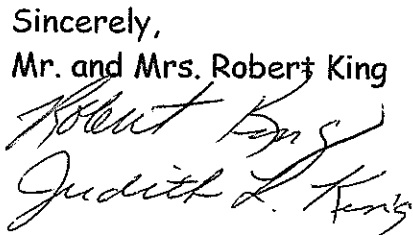 Sincerely,
Mr. and Mrs. Robert King
Robert King
Judith L. King